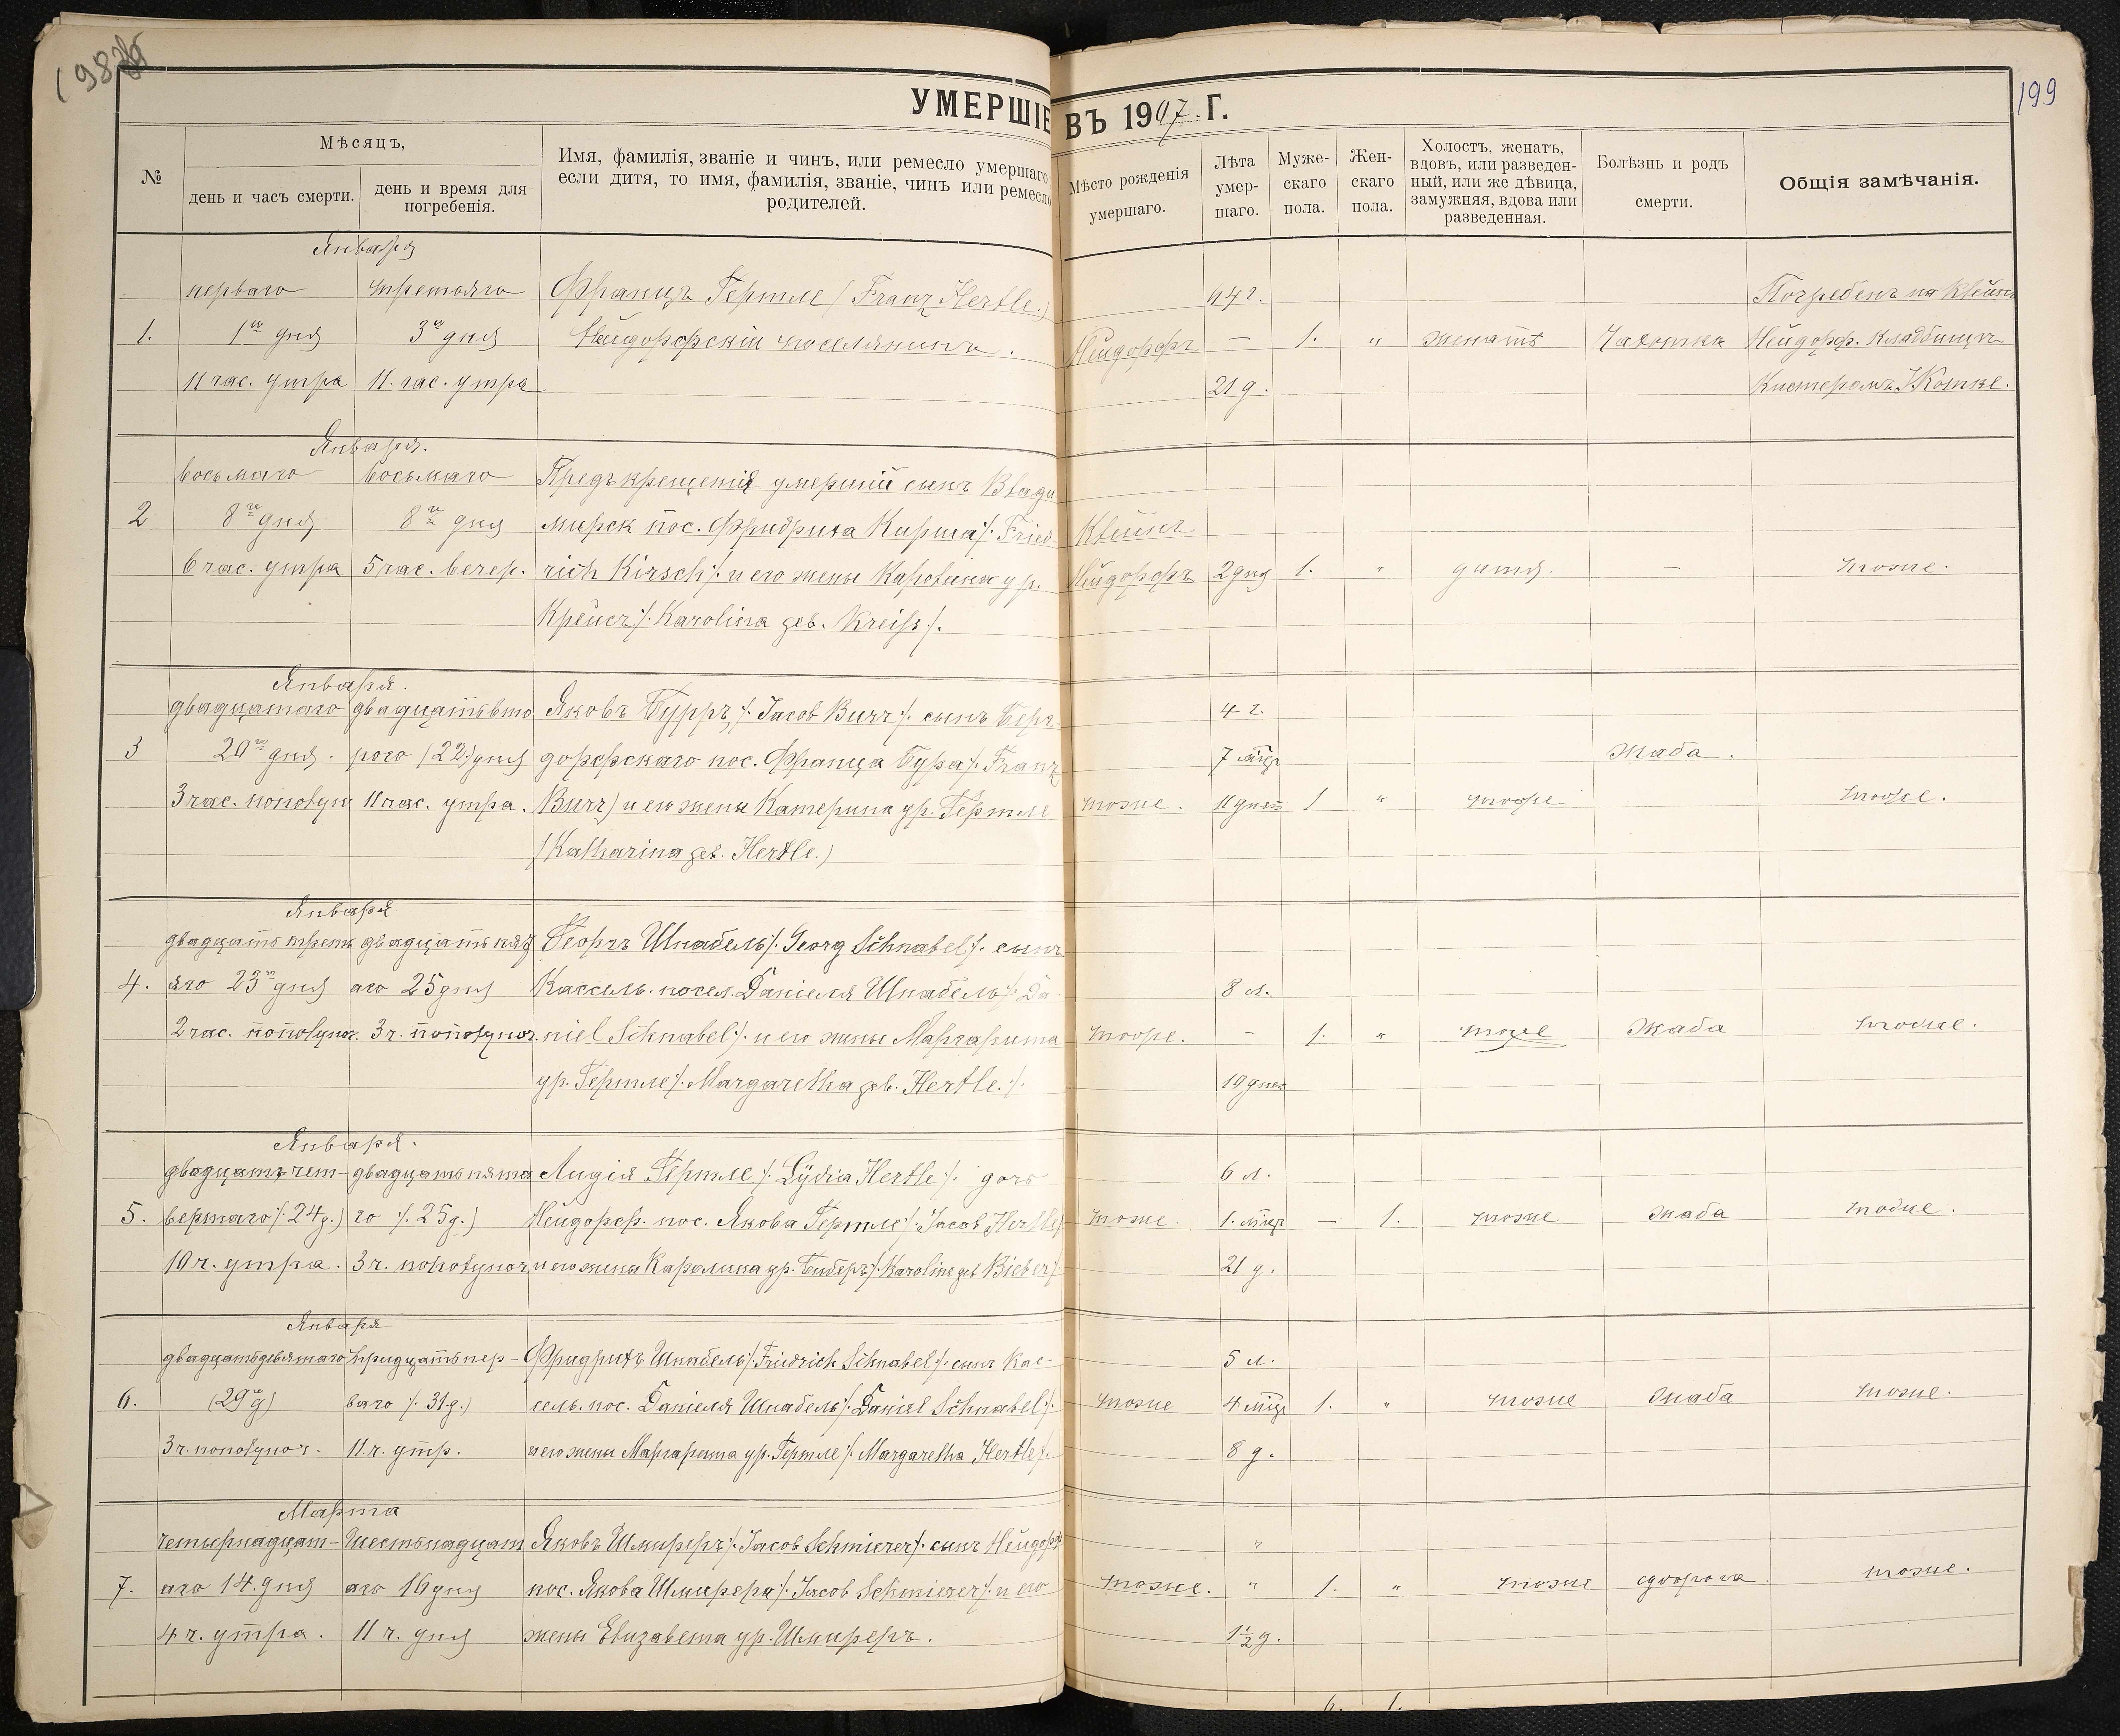 199
УМЕРШІЕ ВЪ 1907 Г.
№
Мѣсяцъ,
день и часъ смерти.
день и время для погребенія.
Имя, фамилія, званіе и чинъ, или ремесло умершаго;
если дитя, то имя, фамилія, званіе, чинъ или ремесло
родителей.
Мѣсто рожденія
умершаго.
Лѣта
умер-
шаго.
Муже-
скаго
пола.
Жен-
скаго
пола.
Холостъ, женатъ,
вдовъ, или разведен-
ный, или же дѣвица,
замужняя, вдова или
разведенная.
Болѣзнь и родъ
смерти.
Общія замѣчанія.
Января
перваго третьяго Францъ Гертле (Franz Hertle.) 64 г. Погребенъ на Клейнъ
1. 1го дня 3го дня Нейдорфскій поселянинъ. Нейдорфъ — 1. " женатъ Чахотка Нейдорф. кладбищѣ
11 час. утра 11. час. утра 21 д. Кистеромъ
Января.
восьмаго восьмаго Предъ крещенія умершій сынъ Влади
2 8го дня 8го дня мирск пос. Фридриха Кирша /: Fried- Клейнъ
6 час. утра 5 час. вечер. rich Kirsch :/ и его жены Каролина ур. Нейдорфъ 2 дня 1. " дитя. — тоже.
Крейсъ /: Karolina geb. Kreiß :/.
Января.
двадцатаго двадцатьвто Яковъ Бурръ, /: Jacob Burr :/. сынъ Берг- 4 г.
3 20го дня. рого (22) дня дорфскаго пос. Франца Бура /: Franz 7 мѣц. Жаба.
3 час. пополуд 11 час. утра. Burr) и его жены Катерина ур. Гертле тоже. 11 дней 1 " тоже тоже.
(Katharina geb. Hertle.)
Января
двадцать треть двадцать пят Георгъ Шнабель /: Georg Schnabel :/. сынъ
4. яго 23го дня аго 25 дня Кассель. посел. Даніеля Шнабель /: Da- 8 л.
2 час. пополуноч. 3 ч. пополуноч. niel Schnabel :/. и его жены Маргарита тоже. – 1. " тоже Жаба тоже.
ур. Гертле /: Margaretha geb. Hertle. :/. 19 дней
Января.
двадцать чет- двадцать пята Лидія Гертле /: Lydia Hertle :/. дочь 6 л.
5. вертаго /: 24 д.) го /: 25 д.) Нейдорф. пос. Якова Гертле /: Jacob Hertle тоже. 1. мѣц. — 1. тоже жаба тоже.
10 ч. утра. 3 ч. пополуноч и его жены Каролина ур. Биберъ /: Karoline geb Bieber :/. 21 д.
Января
двадцатьдевятаго тридцать пер- Фридрихъ Шнабель /: Friedrich Schnabel :/. сынъ Кас- 5 л.
6. (29го д) ваго /: 31 д.) сель. пос. Даніеля Шнабель /: Daniel Schnabel :/. тоже 4 мѣц. 1. " тоже жаба тоже.
3 ч. пополуноч. 11 ч. утр. и его жены Маргарита ур. Гертле /: Margaretha Hertle :/. 8 д.
Марта
четырнадцат- Шестьнадцат Яковъ Шмиреръ /: Jacob Schmierer :/. сынъ Нейдорф "
7. аго 14. дня аго 16 дня пос. Якова Шмирера /: Jacob Schmierer :/. и его тоже. " 1. " тоже тоже.
4 ч. утра. 11 ч. дня жены Елизавета ур. Шмиреръ. 1½ д.
6. 1.